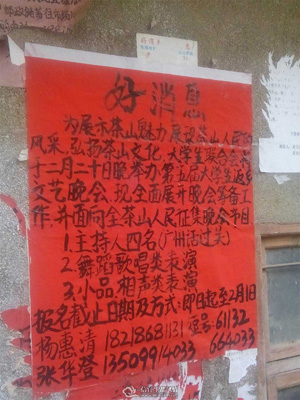 好消息
为展示茶山魅力展设茶山人民的
风采，弘扬茶山文化，大学生联合会
于二月二十日举办第五届大学生返乡
文艺晚会，现全面展开晚会筹备工
作，并面向全茶山人民征集晚会节目
1.主持人四名(广州话过关)
2.舞蹈歌唱类表演
3.小品相声类表演
报名截止日期及方式:即日起至2月1
杨惠清 18218681131 短号:61132
张华登 13509914033 664033